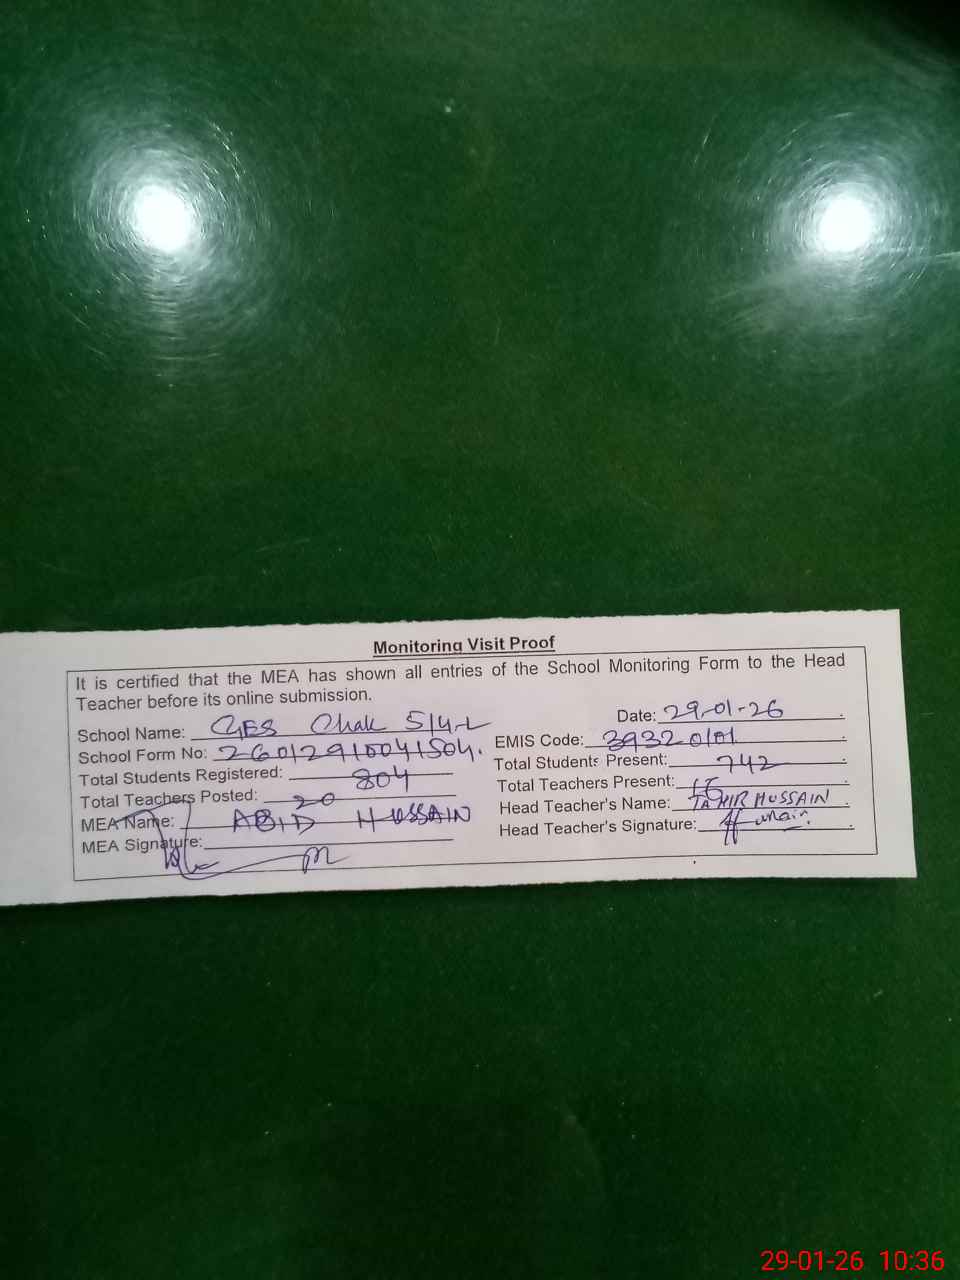 Monitoring Visit Proof
It is certified that the MEA has shown all entries of the School Monitoring Form to the Head
Teacher before its online submission.
School Name: GES Chak 5/4-L
Date: 29-01-26
School Form No: 26012910041504.
EMIS Code: 39320101
Total Students Registered: 804
Total Students Present: 742
Total Teachers Posted: 20
Total Teachers Present:
MEA Name: ABID HUSSAIN
Head Teacher's Name: TAHIR HUSSAIN
MEA Signature:
Head Teacher's Signature:
29-01-26 10:36